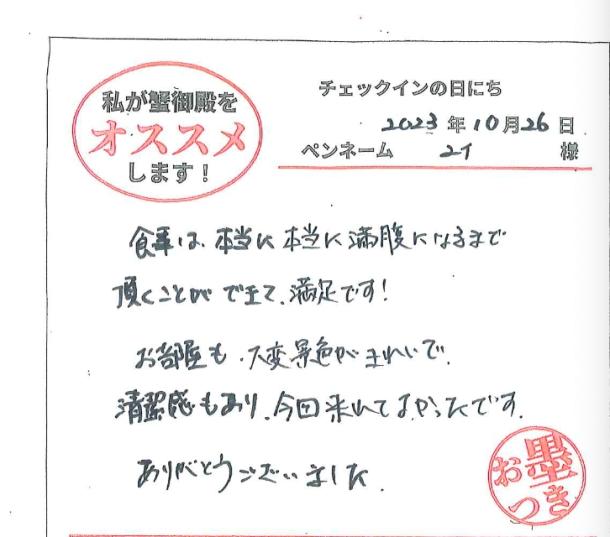 私が蟹御殿を
オススメ
します！
チェックインの日にち
2023年10月26日
ペンネーム ユイ 様
食事は、本当に本当に満腹になるまで
頂くことができて、満足です！
お部屋も、大変景色がきれいで、
清潔感もあり、今回来れてよかったです。
ありがとうございました。
お墨つき